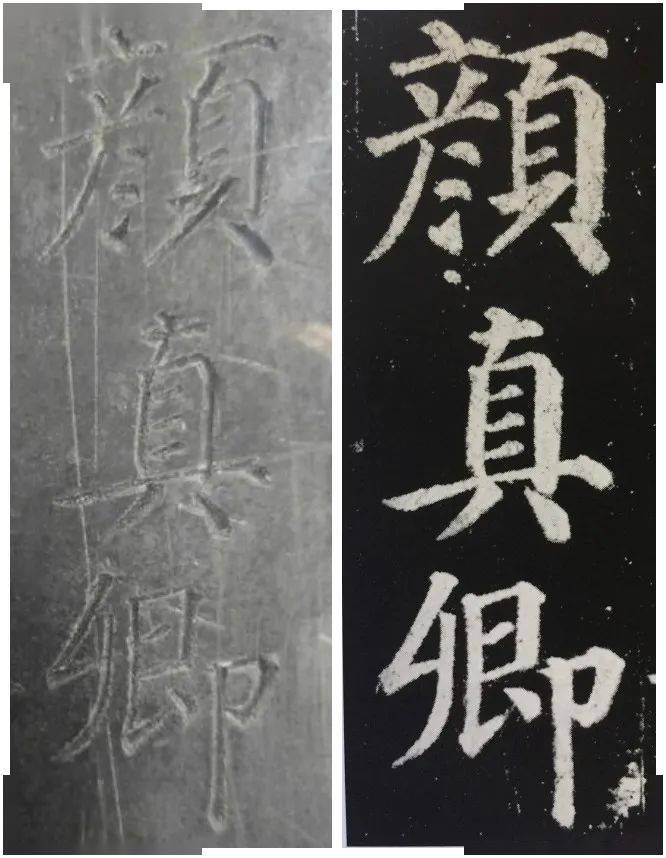 顏真卿
顏真卿